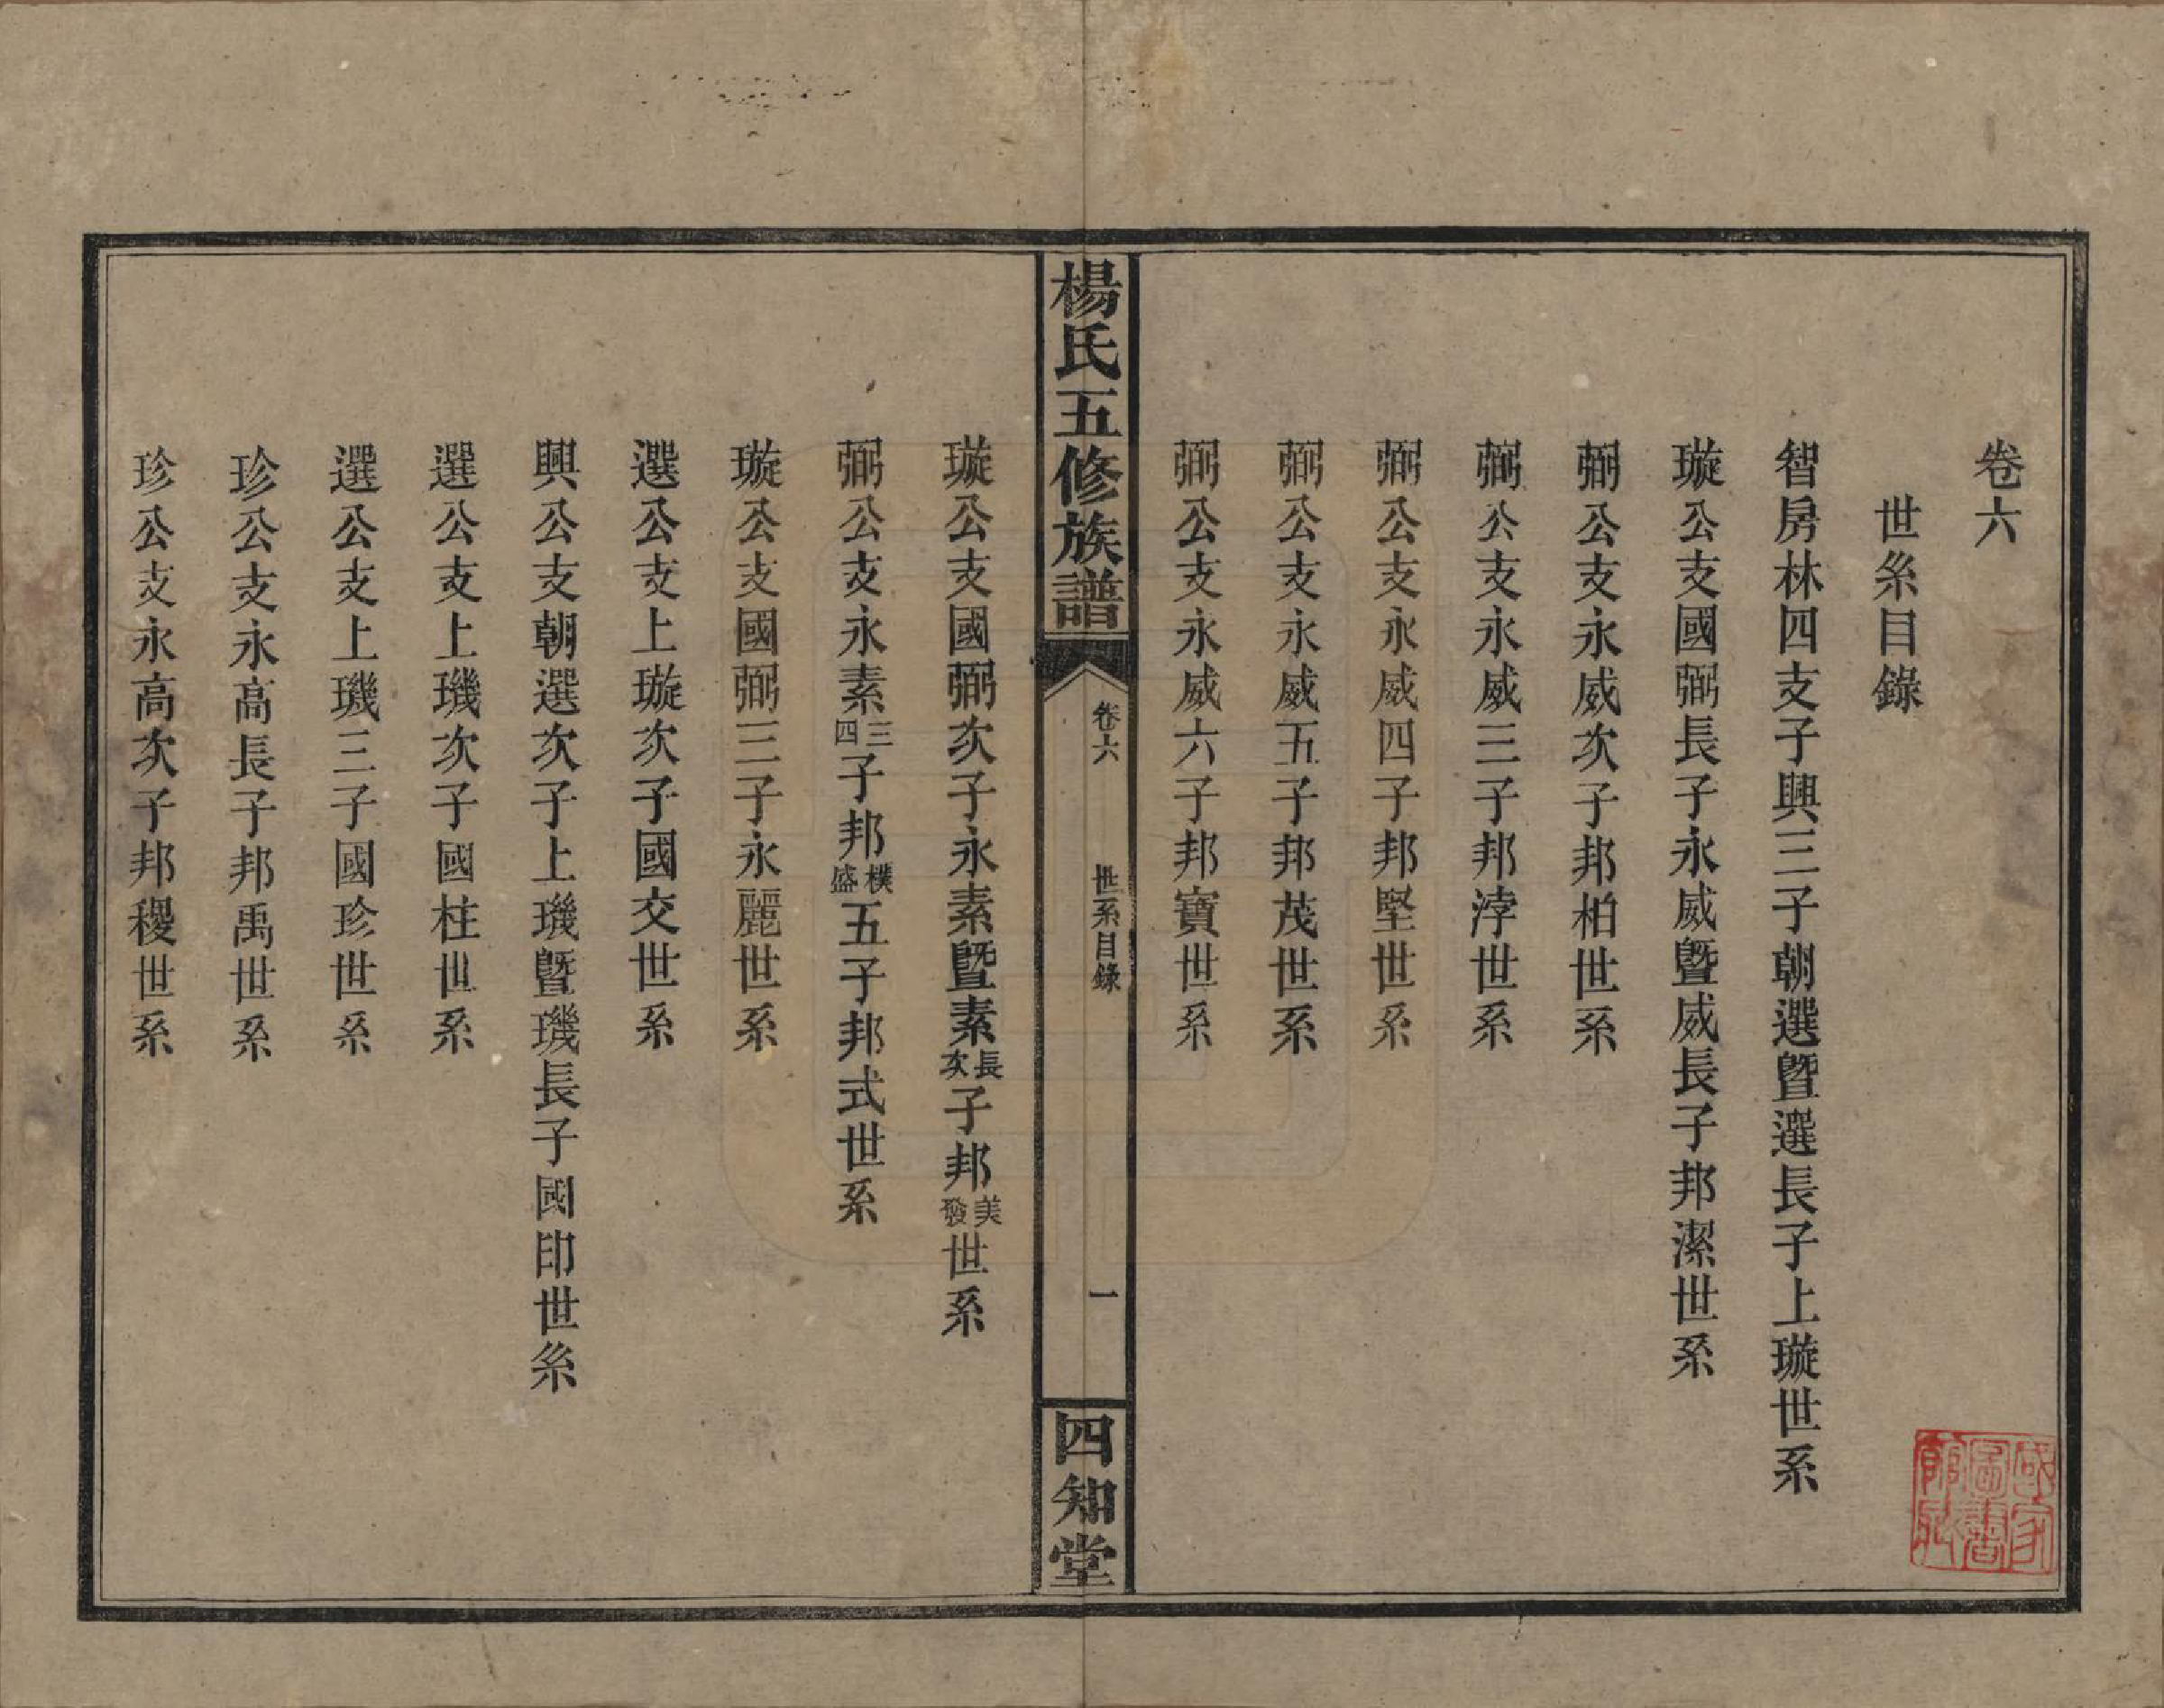 卷六
世系目錄
智房林四支子興三子朝選曁選長子上璇世系
璇公支國弼長子永威曁威長子邦潔世系
弼公支永威次子邦柏世系
弼公支永威三子邦浡世系
弼公支永威四子邦堅世系
弼公支永威五子邦茂世系
弼公支永威六子邦寶世系
楊氏五修族譜
卷六
世系目錄
一
四知堂
璇公支國弼次子永素曁素長次子邦美發世系
弼公支永素三四子邦樸盛五子邦式世系
璇公支國弼三子永麗世系
選公支上璇次子國交世系
興公支朝選次子上璣曁璣長子國印世系
選公支上璣次子國柱世系
選公支上璣三子國珍世系
珍公支永高長子邦禹世系
珍公支永高次子邦稷世系
國家
圖書
館藏